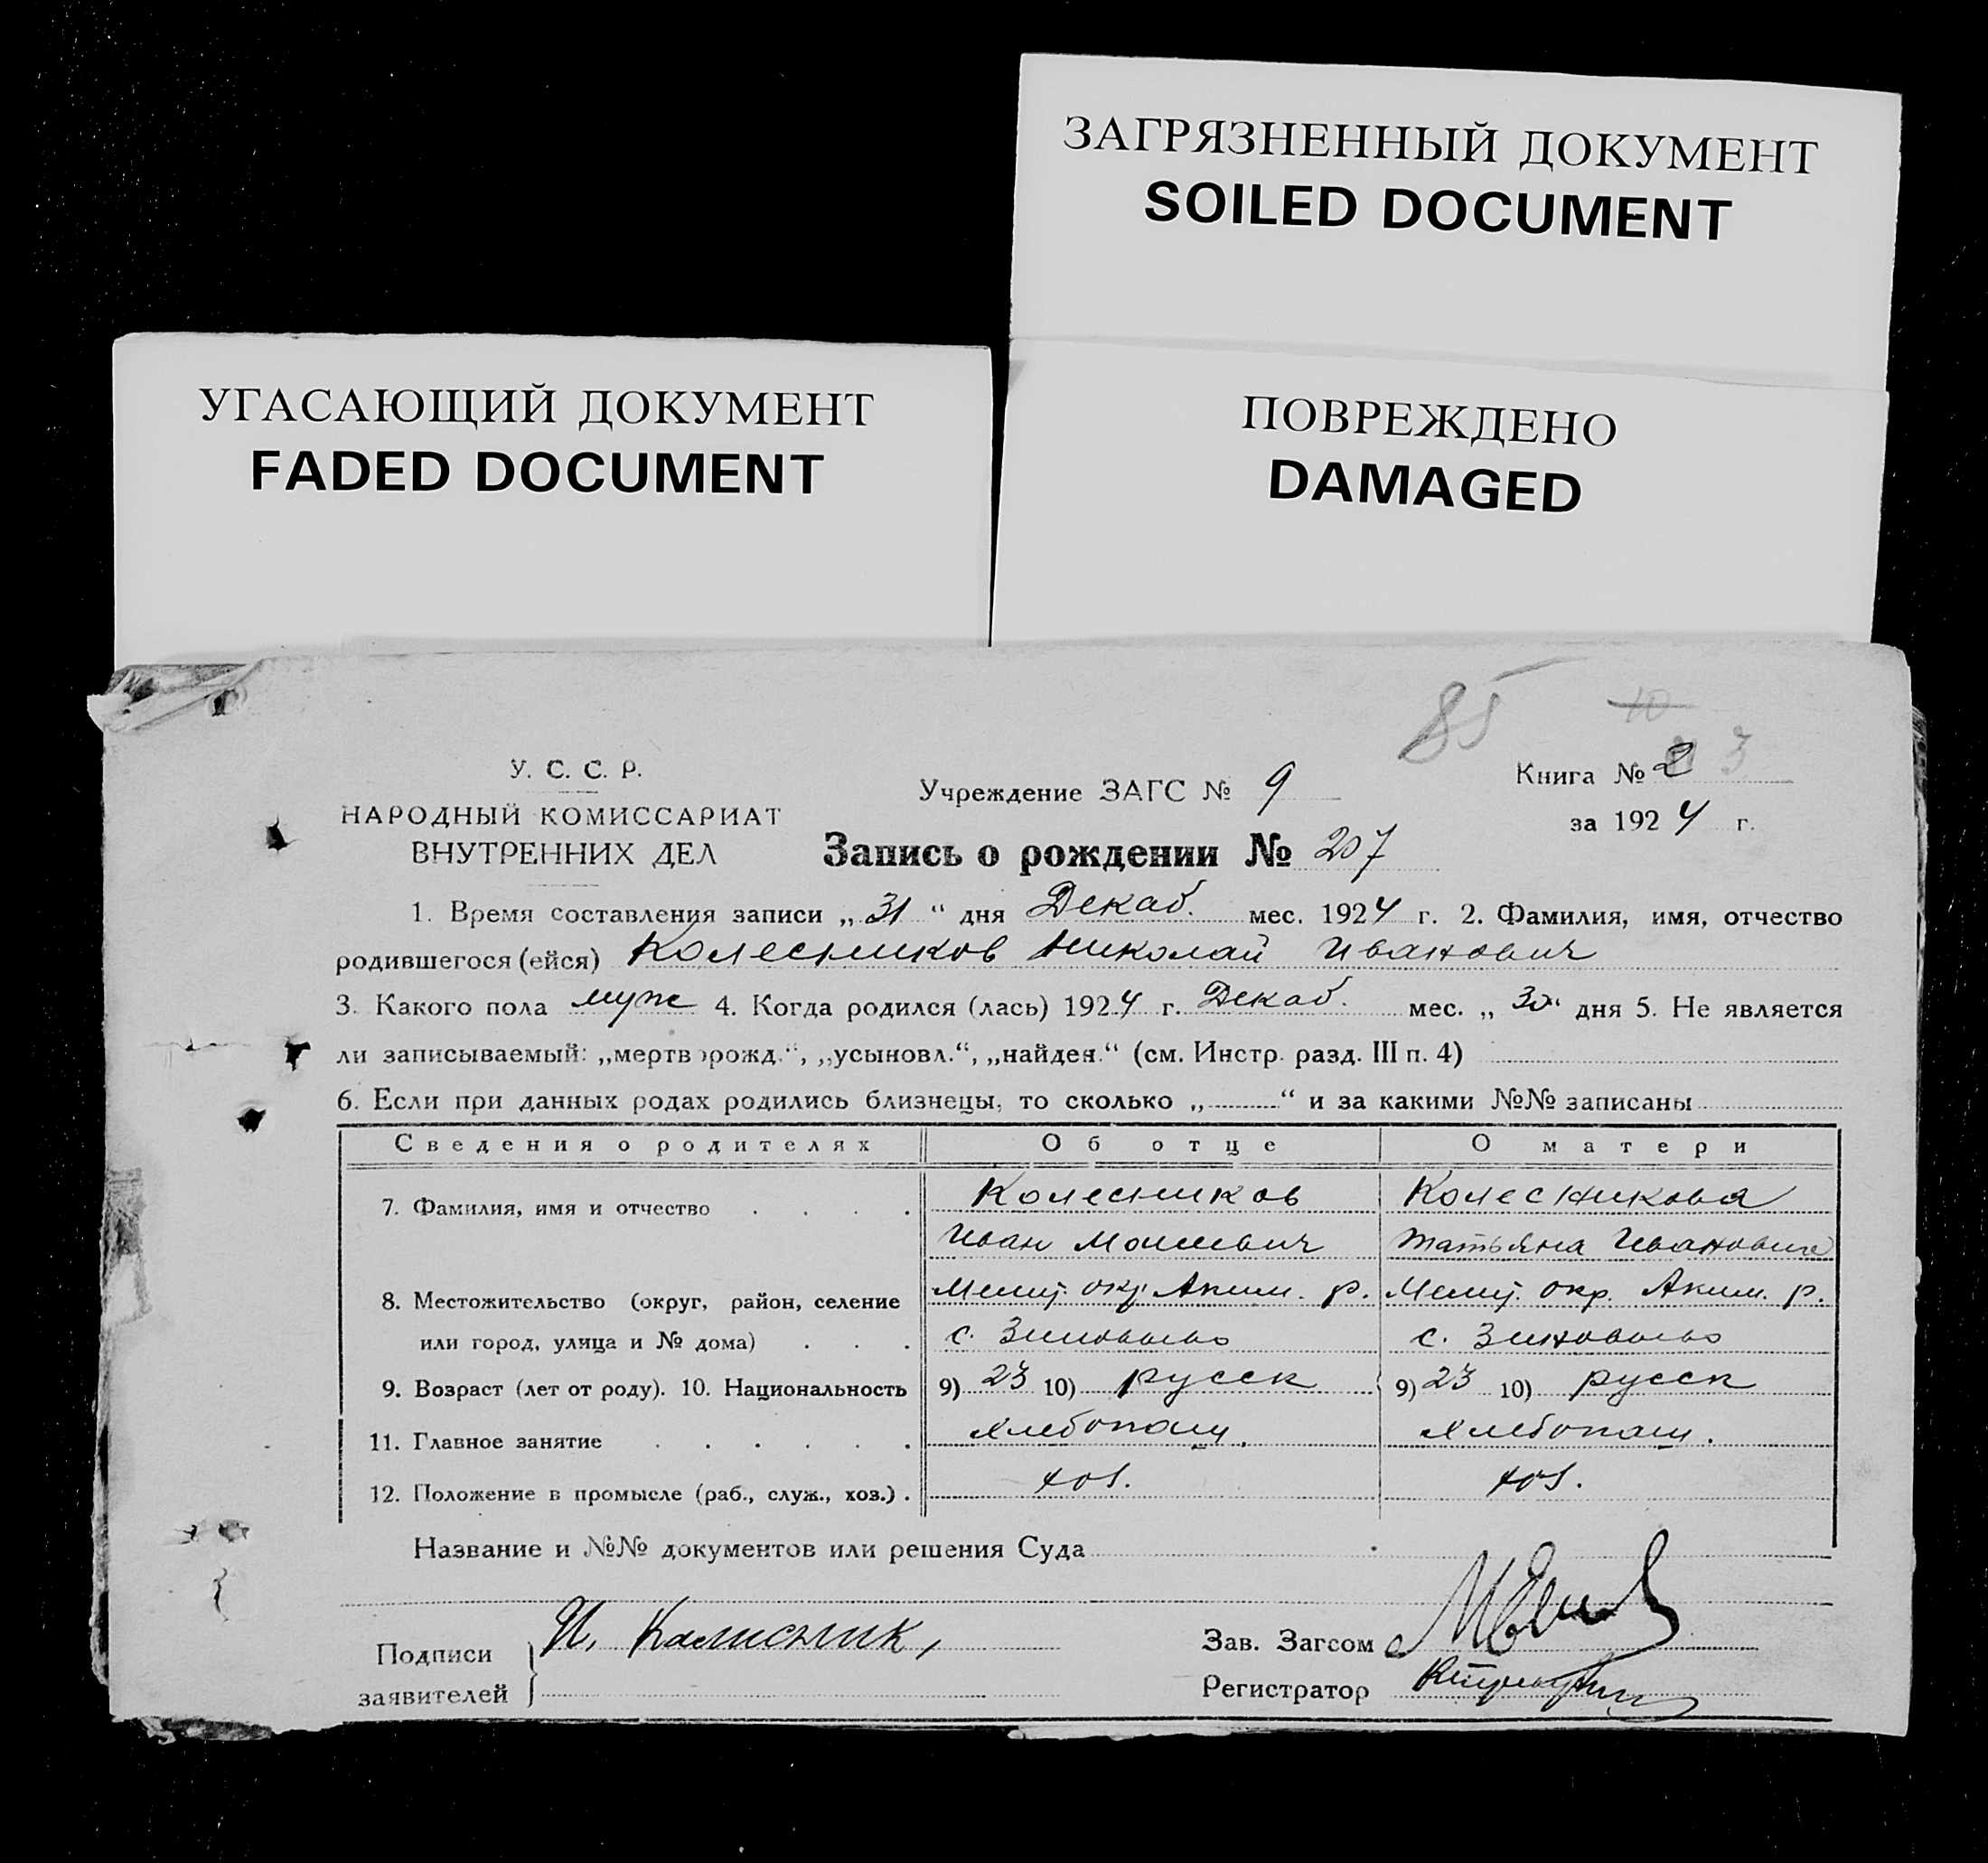 ЗАГРЯЗНЕННЫЙ ДОКУМЕНТ
SOILED DOCUMENT
УГАСАЮЩИЙ ДОКУМЕНТ
FADED DOCUMENT
ПОВРЕЖДЕНО
DAMAGED
85 10
3
У. С. С. Р.
НАРОДНЫЙ КОМИССАРИАТ
ВНУТРЕННИХ ДЕЛ
Учреждение ЗАГС № 9
Книга № 2
за 1924 г.
Запись о рождении № 207
1. Время составления записи „31“ дня Декаб. мес. 1924 г. 2. Фамилия, имя, отчество
родившегося (ейся) Колесников Николай Иванович
3. Какого пола муж 4. Когда родился (лась) 1924 г. Декаб. мес. „30“ дня 5. Не является
ли записываемый: „мертворожд.“, „усыновл.“, „найден.“ (см. Инстр. разд. III п. 4)
6. Если при данных родах родились близнецы, то сколько „ “ и за какими №№ записаны
Сведения о родителях Об отце О матери
7. Фамилия, имя и отчество Колесников Колесникова
Иван Моисевич Татьяна Ивановна
8. Местожительство (округ, район, селение Мелит. окр. Аким. р. Мелит. окр. Аким. р.
или город, улица и № дома) с. Зиновьево с. Зиновьево
9. Возраст (лет от роду). 10. Национальность 9) 23 10) русск 9) 23 10) русск
11. Главное занятие хлебопаш. хлебопаш.
12. Положение в промысле (раб., служ., хоз.) хоз. хоз.
Название и №№ документов или решения Суда
Подписи
заявителей
И. Калисник,
Зав. Загсом
Регистратор